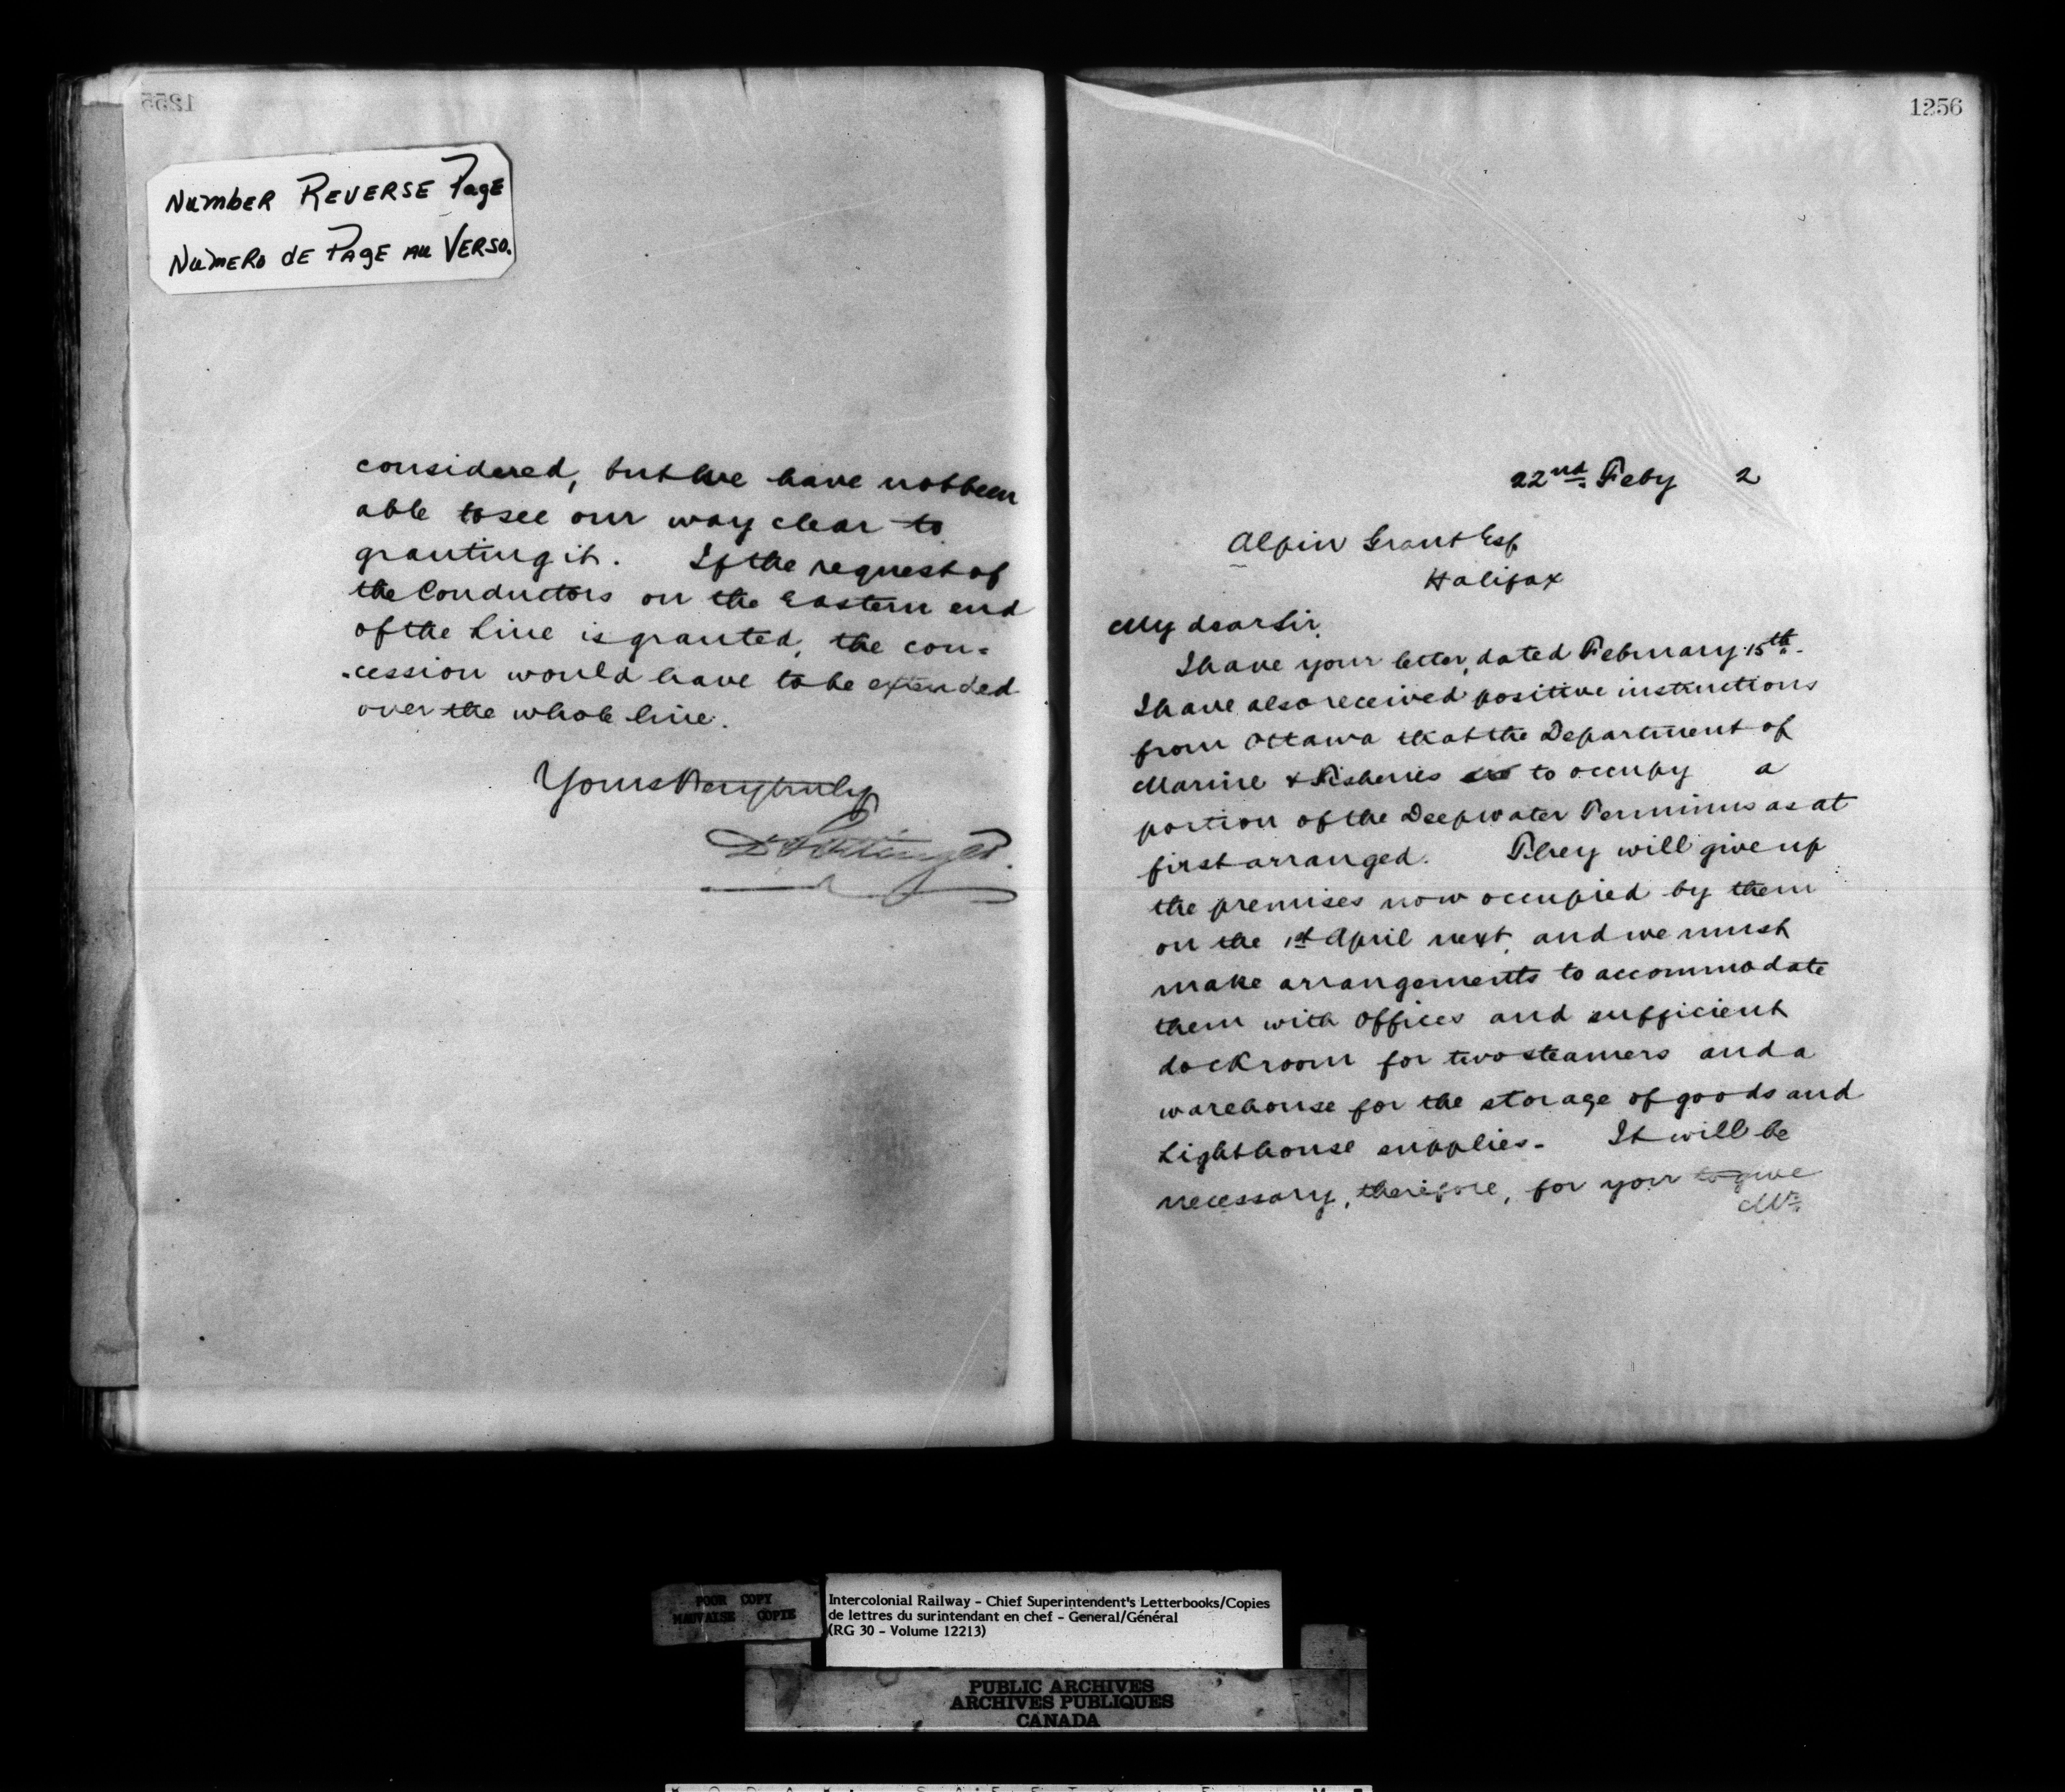 1255
Number Reverse Page
Numero de Page au Verso.
considered, but we have not been
able to see our way clear to
granting it. If the request of
the Conductors on the Eastern end
of the Line is granted, the con-
-cession would have to be extended
over the whole line.
Yours very truly
D Pottinger.
1256
22nd. Feby 2
Alpin Grant Esq
Halifax
My dear Sir,
I have your letter, dated February 15th.
I have also received positive instructions
from Ottawa that the Department of
Marine & Fisheries to occupy a
portion of the Deepwater Terminus as at
first arranged. They will give up
the premises now occupied by them
on the 1st April next, and we must
make arrangements to accommodate
them with offices and sufficient
dock room for two steamers and a
warehouse for the storage of goods and
Lighthouse supplies. It will be
necessary, therefore, for you to give
Mr.
POOR COPY
MAUVAISE COPIE
Intercolonial Railway - Chief Superintendent's Letterbooks/Copies
de lettres du surintendant en chef - General/Général
(RG 30 - Volume 12213)
PUBLIC ARCHIVES
ARCHIVES PUBLIQUES
CANADA